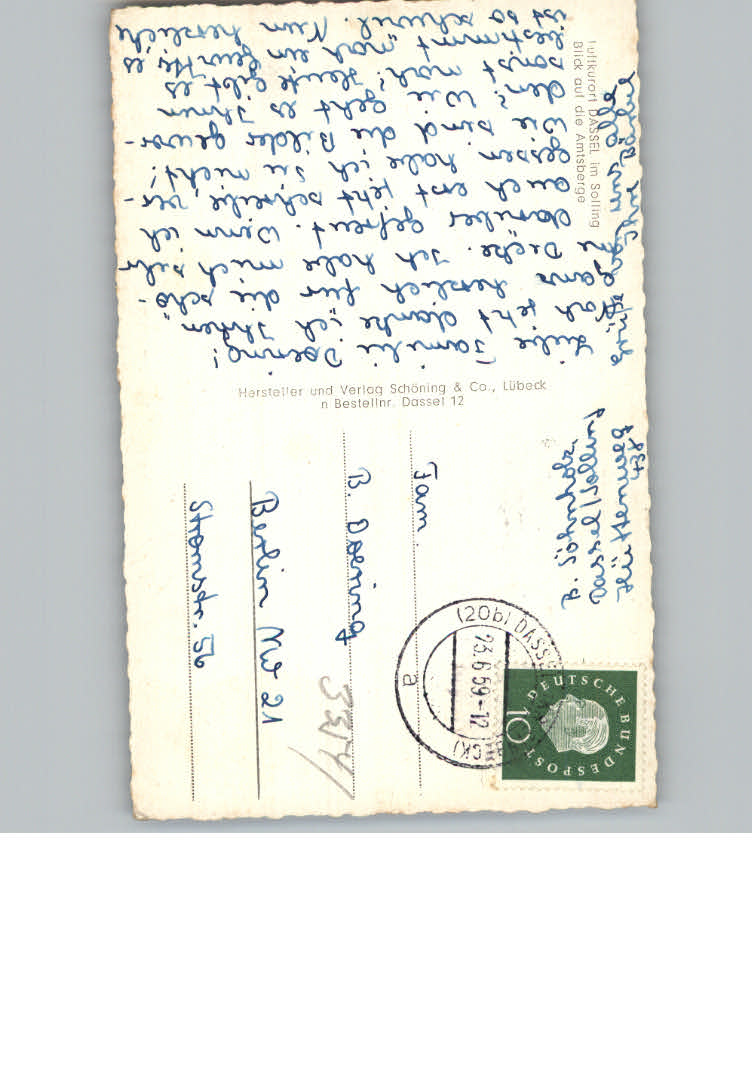 Luftkurort DASSEL im Solling
Blick auf die Amtsberge
Liebe Familie Doering!
Ach jetzt danke ich Ihnen
ganz herzlich für die schö-
ne Decke. Ich habe mich sehr
darüber gefreut. Wenn ich
auch erst jetzt schreibe, ver-
gessen habe ich Sie nicht!
Wie sind die Bilder gewor-
den? Wie geht es Ihnen
sonst noch? Heute gibt es
bestimmt noch ein Gewitter, es
ist so schwül. Nun herzliche
Grüße von uns alle
Ihre
Hersteller und Verlag Schöning & Co., Lübeck
n Bestellnr. Dassel 12
Dassel/Solling
DEUTSCHE BUNDESPOST
10
(20b) DASSEL
23.6.59-12
a
Fam.
B. Doering
Berlin NW 21
Stromstr. 56
3314/